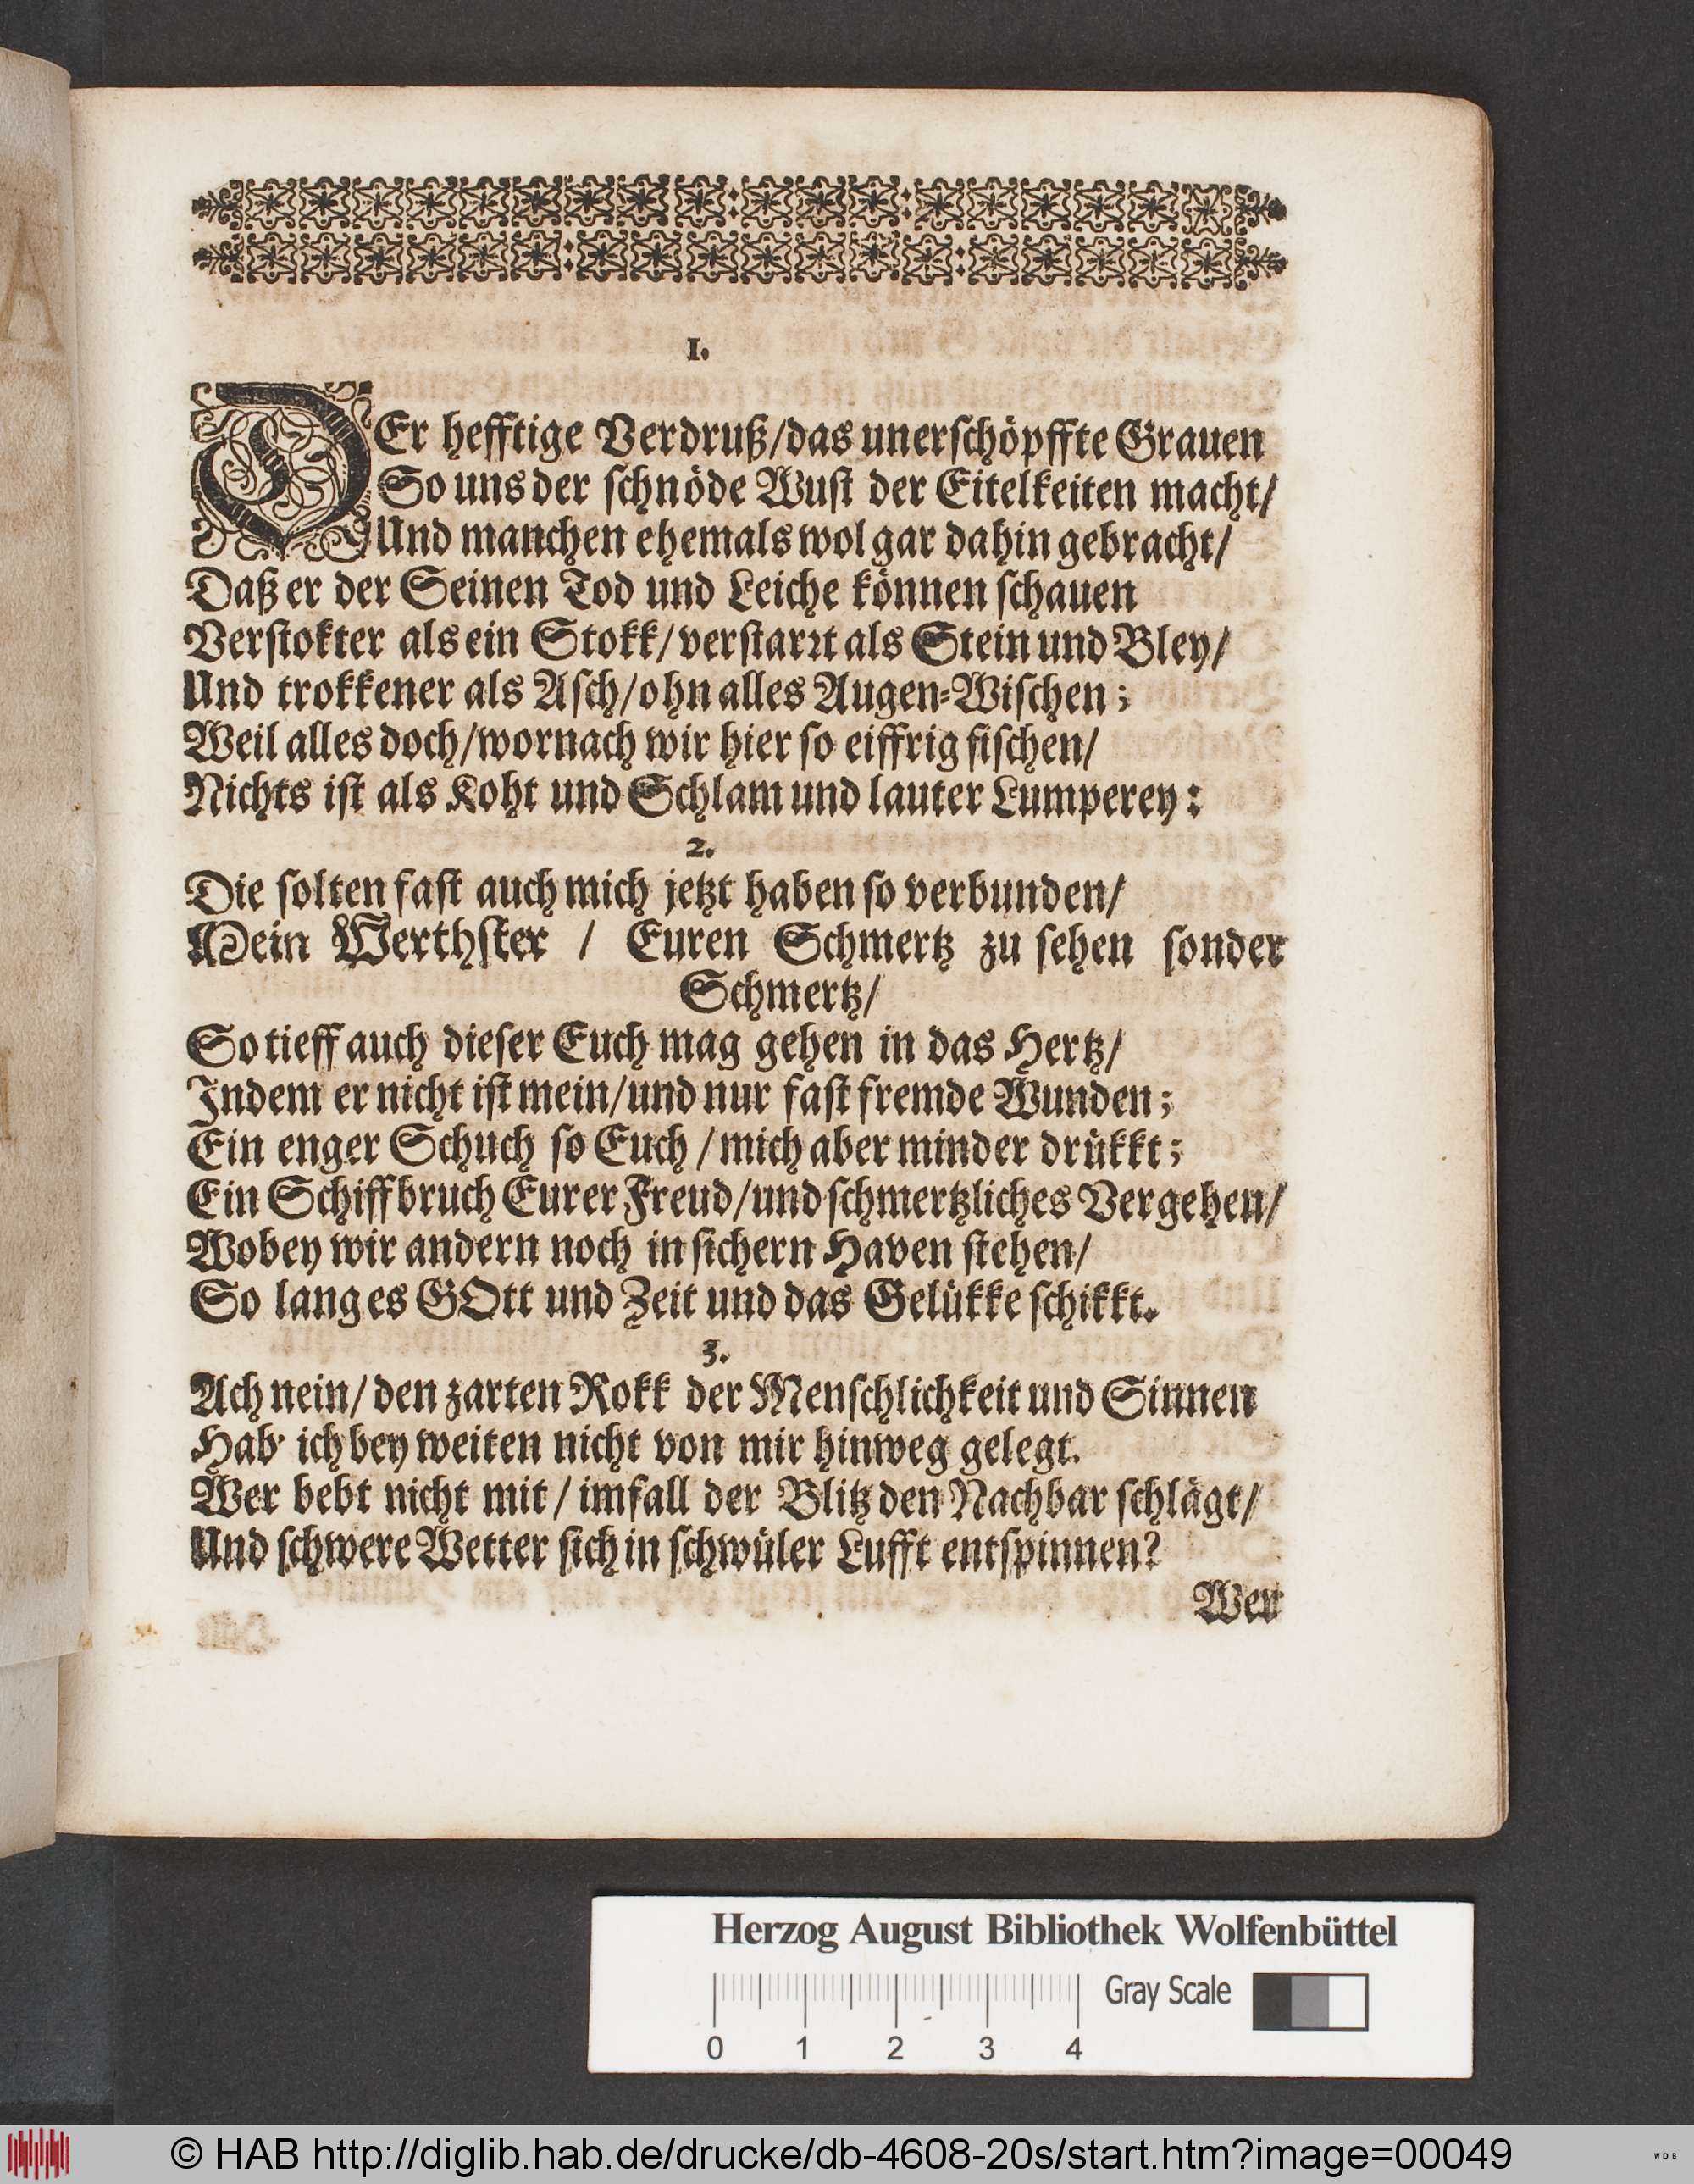 1.
DEr hefftige Verdruß/das unerschöpffte Grauen
So uns der schnöde Wust der Eitelkeiten macht/
Und manchen ehemals wol gar dahin gebracht/
Daß er der Seinen Tod und Leiche können schauen
Verstokter als ein Stokk/verstarrt als Stein und Bley/
Und trokkener als Asch/ohn alles Augen-Wischen;
Weil alles doch/wornach wir hier so eiffrig fischen/
Nichts ist als Koht und Schlam und lauter Lumperey:
2.
Die solten fast auch mich jetzt haben so verbunden/
Mein Werthster / Euren Schmertz zu sehen sonder
Schmertz/
So tieff auch dieser Euch mag gehen in das Hertz/
Indem er nicht ist mein/und nur fast fremde Wunden;
Ein enger Schuch so Euch / mich aber minder drükkt;
Ein Schiffbruch Eurer Freud/und schmertzliches Vergehen/
Wobey wir andern noch in sichern Haven stehen/
So lang es GOtt und Zeit und das Gelükke schikkt.
3.
Ach nein/den zarten Rokk der Menschlichkeit und Sinnen
Hab' ich bey weiten nicht von mir hinweg gelegt.
Wer bebt nicht mit / imfall der Blitz den Nachbar schlägt/
Und schwere Wetter sich in schwüler Lufft entspinnen?
Wer
Herzog August Bibliothek Wolfenbüttel
Gray Scale
0 1 2 3 4
© HAB http://diglib.hab.de/drucke/db-4608-20s/start.htm?image=00049
WDB